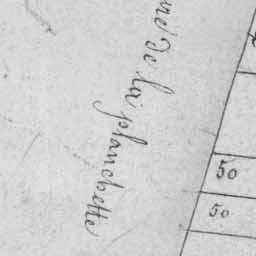 de la planchette
50
50